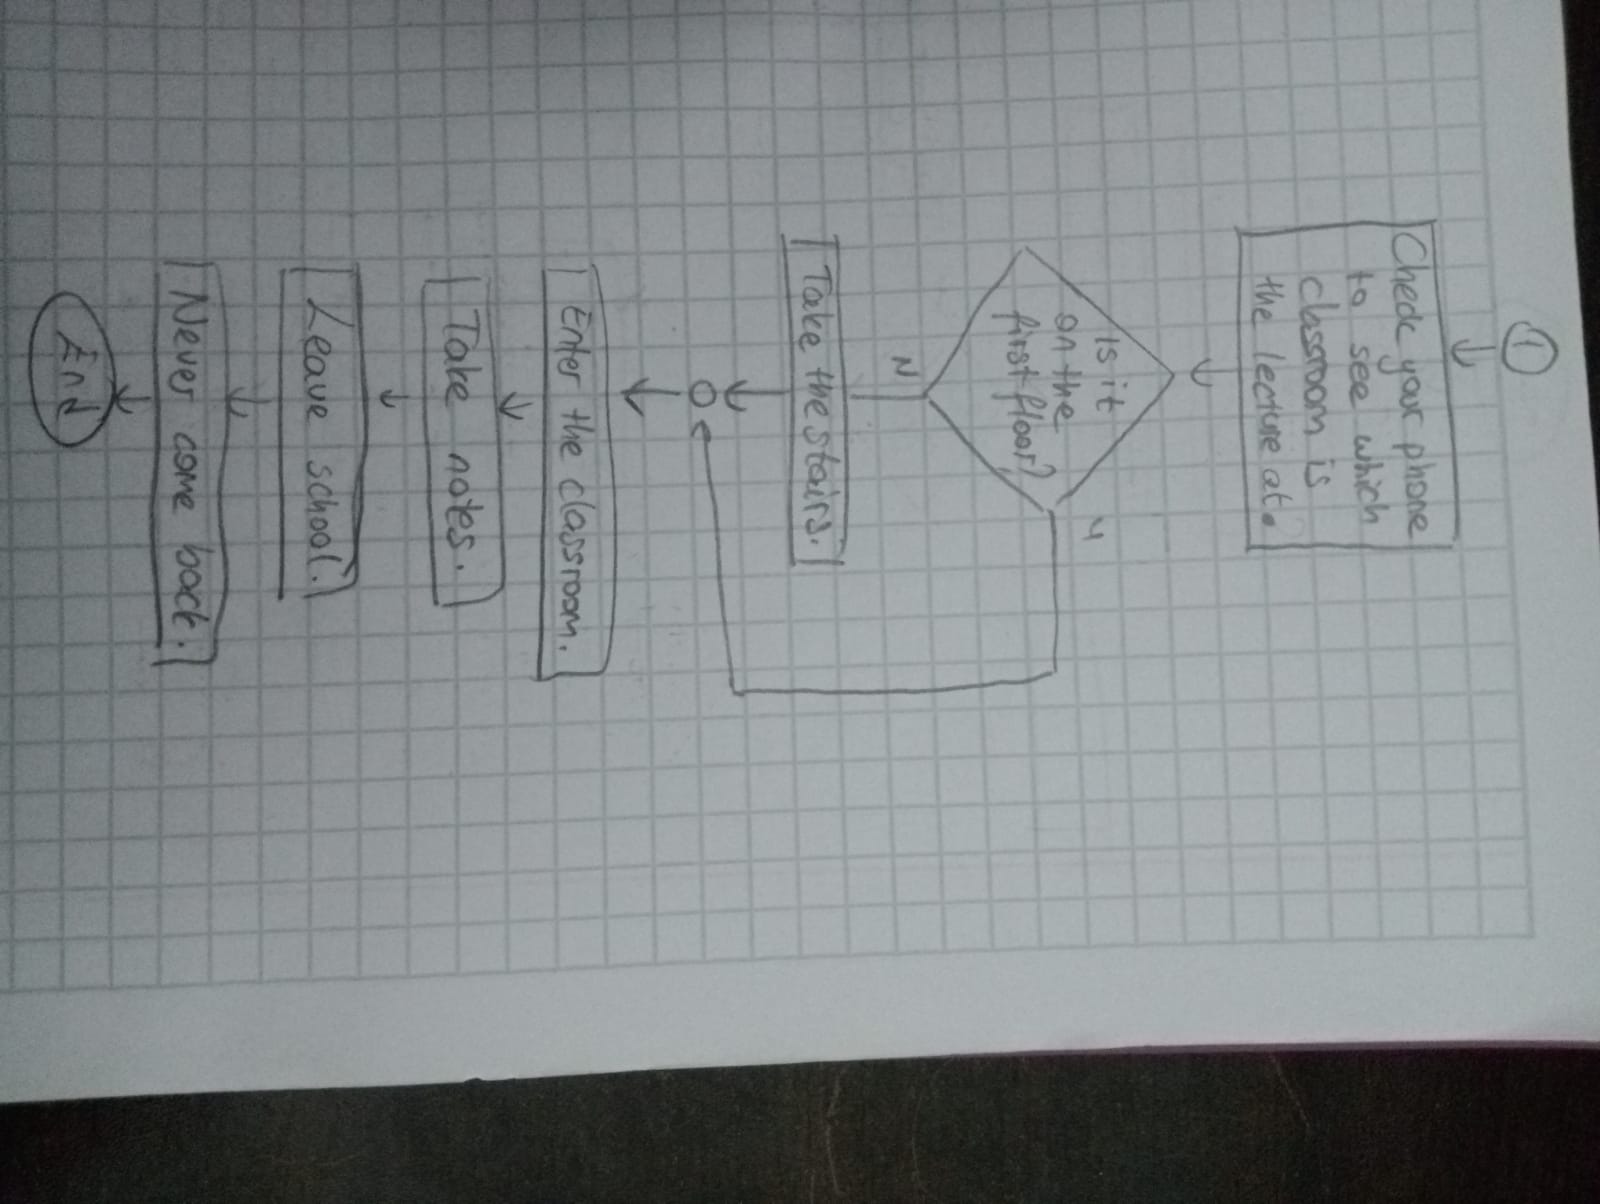 1
Check your phone
to see which
classroom is
the lecture at.
Is it
on the
first floor?
Y
N
Take the stairs.
Enter the classroom.
Take notes.
Leave school.
Never come back.
End